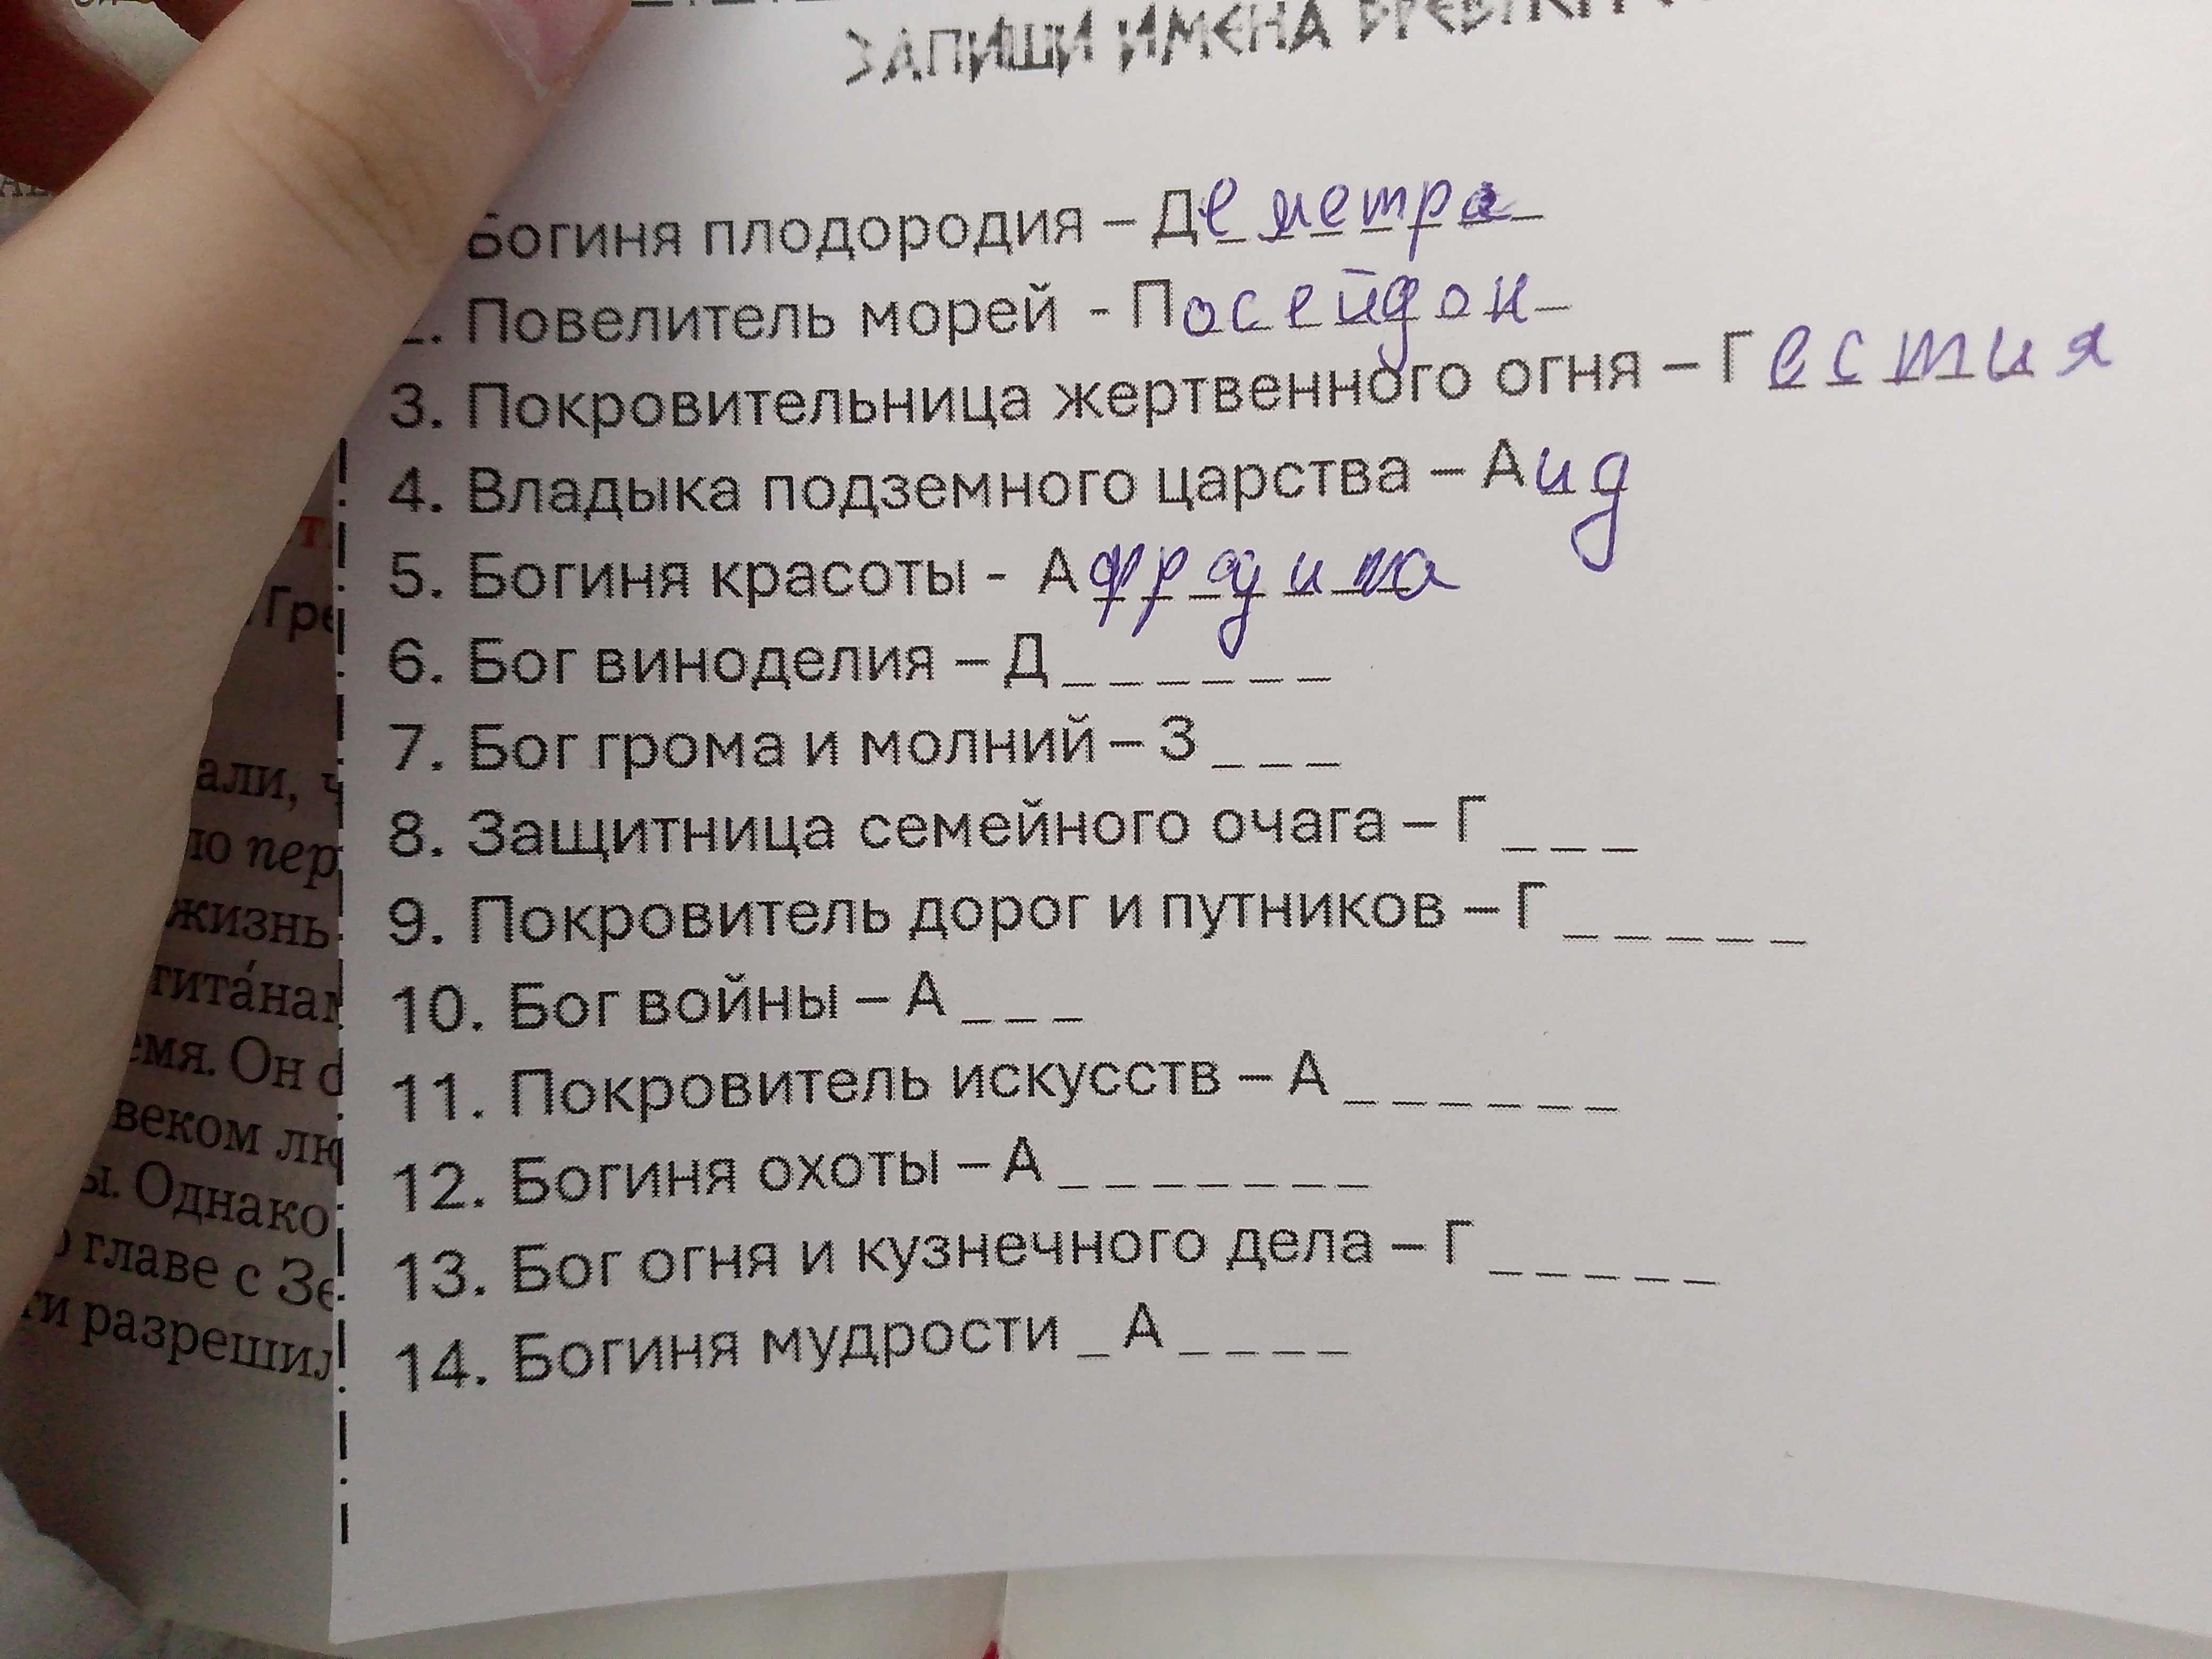 ЗАПИШИ ИМЕНА
Богиня плодородия – Деметра_
2. Повелитель морей - Посейдон_
3. Покровительница жертвенного огня – Гестия
4. Владыка подземного царства – Аид
5. Богиня красоты - Афродита
6. Бог виноделия – Д_ _ _ _ _ _
7. Бог грома и молний – З_ _ _
8. Защитница семейного очага – Г_ _ _
9. Покровитель дорог и путников – Г_ _ _ _ _
10. Бог войны – А_ _ _
11. Покровитель искусств – А_ _ _ _ _ _
12. Богиня охоты – А_ _ _ _ _ _ _
13. Бог огня и кузнечного дела – Г_ _ _ _ _
14. Богиня мудрости _ А_ _ _ _
али, ч
ло пер
жизнь
титáнам
емя. Он о
веком лю
ы. Однако
о главе с Зе
ти разрешил